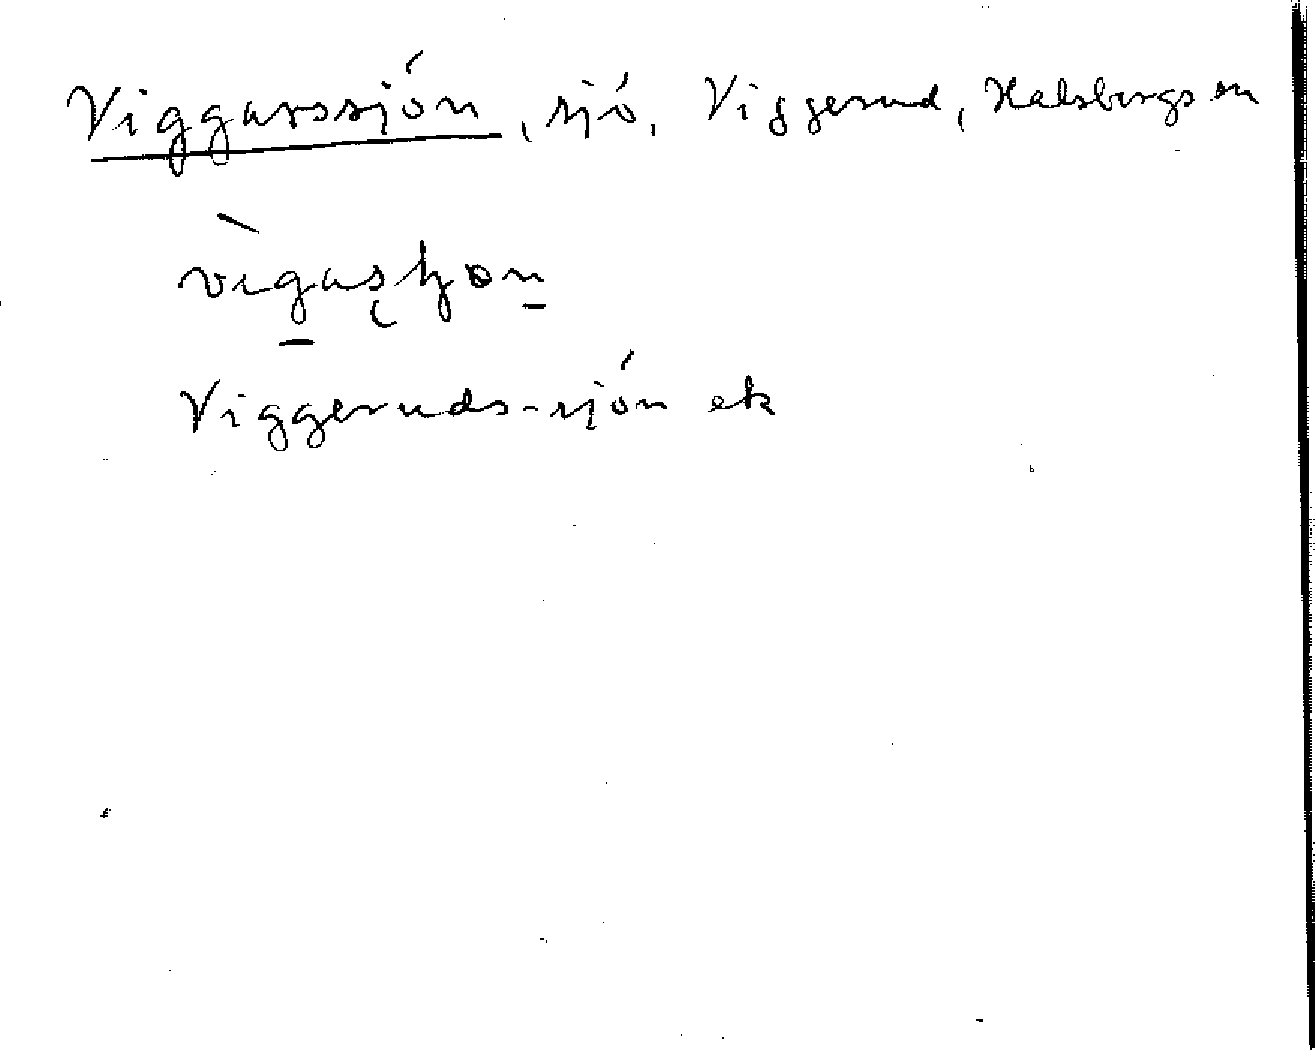 Viggarssjön, sjö, Viggerud, Halsbergs sn
Viggeruds-sjön ek